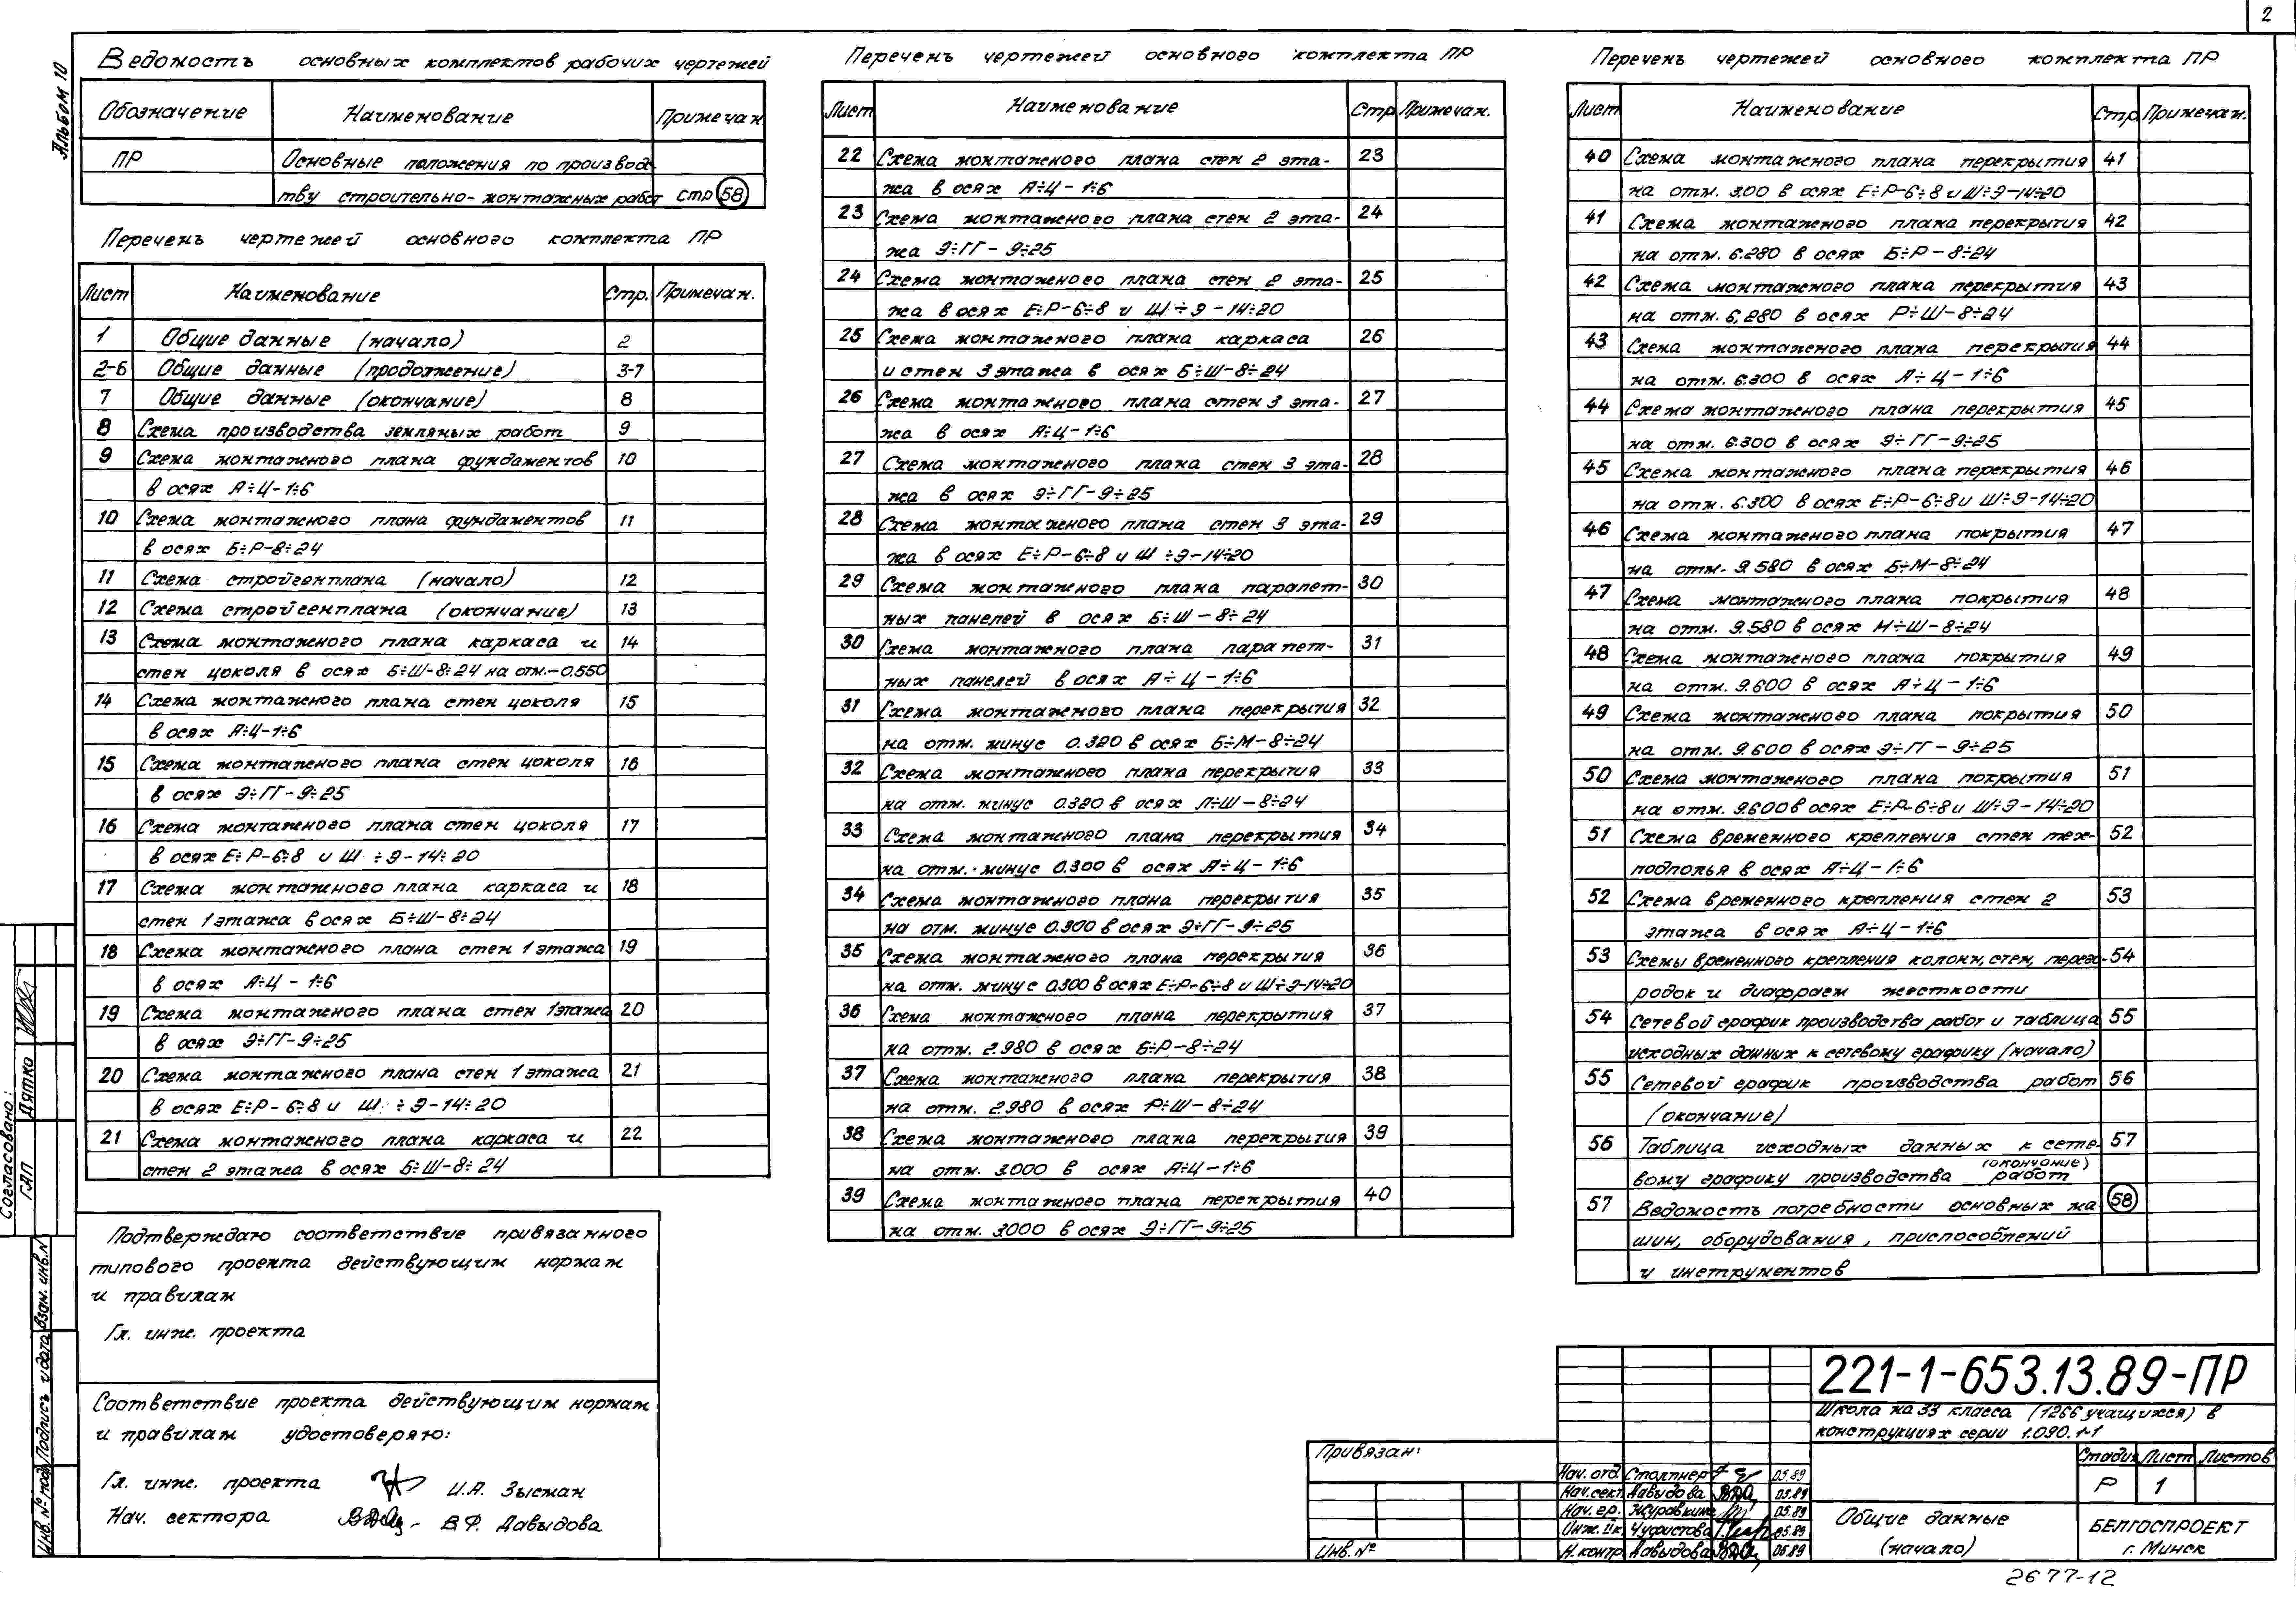 2
Альбом 10
Ведомость основных комплектов рабочих чертежей
Обозначение Наименование Примечан.
ПР Основные положения по производ-
тву строительно-монтажных работ стр 58
Перечень чертежей основного комплекта ПР
Лист Наименование Стр. Примечан.
1 Общие данные (начало) 2
2-6 Общие данные (продолжение) 3-7
7 Общие данные (окончание) 8
8 Схема производства земляных работ 9
9 Схема монтажного плана фундаментов 10
в осях А÷Ц-1÷6
10 Схема монтажного плана фундаментов 11
в осях Б÷Р-8÷24
11 Схема стройгенплана (начало) 12
12 Схема стройгенплана (окончание) 13
13 Схема монтажного плана каркаса и 14
стен цоколя в осях Б÷Ш-8÷24 на отм.-0.550
14 Схема монтажного плана стен цоколя 15
в осях А÷Ц-1÷6
15 Схема монтажного плана стен цоколя 16
в осях Э÷ГГ-9÷25
16 Схема монтажного плана стен цоколя 17
в осях Е÷Р-6÷8 и Ш÷Э-14÷20
17 Схема монтажного плана каркаса и 18
стен 1 этажа в осях Б÷Ш-8÷24
18 Схема монтажного плана стен 1 этажа 19
в осях А÷Ц-1÷6
19 Схема монтажного плана стен 1 этажа 20
в осях Э÷ГГ-9÷25
20 Схема монтажного плана стен 1 этажа 21
в осях Е÷Р-6÷8 и Ш÷Э-14÷20
21 Схема монтажного плана каркаса и 22
стен 2 этажа в осях Б÷Ш-8÷24
Перечень чертежей основного комплекта ПР
Лист Наименование Стр. Примечан.
22 Схема монтажного плана стен 2 эта- 23
жа в осях А÷Ц-1÷6
23 Схема монтажного плана стен 2 эта- 24
жа Э÷ГГ-9÷25
24 Схема монтажного плана стен 2 эта- 25
жа в осях Е÷Р-6÷8 и Ш÷Э-14÷20
25 Схема монтажного плана каркаса 26
и стен 3 этажа в осях Б÷Ш-8÷24
26 Схема монтажного плана стен 3 эта- 27
жа в осях А÷Ц-1÷6
27 Схема монтажного плана стен 3 эта- 28
жа в осях Э÷ГГ-9÷25
28 Схема монтажного плана стен 3 эта- 29
жа в осях Е÷Р-6÷8 и Ш÷Э-14÷20
29 Схема монтажного плана парапет- 30
ных панелей в осях Б÷Ш-8÷24
30 Схема монтажного плана парапет- 31
ных панелей в осях А÷Ц-1÷6
31 Схема монтажного плана перекрытия 32
на отм. минус 0.320 в осях Б÷М-8÷24
32 Схема монтажного плана перекрытия 33
на отм. минус 0.320 в осях Л÷Ш-8÷24
33 Схема монтажного плана перекрытия 34
на отм. минус 0.300 в осях А÷Ц-1÷6
34 Схема монтажного плана перекрытия 35
на отм. минус 0.300 в осях Э÷ГГ-9÷25
35 Схема монтажного плана перекрытия 36
на отм. минус 0.300 в осях Е÷Р-6÷8 и Ш÷Э-14÷20
36 Схема монтажного плана перекрытия 37
на отм. 2.980 в осях Б÷Р-8÷24
37 Схема монтажного плана перекрытия 38
на отм. 2.980 в осях Р÷Ш-8÷24
38 Схема монтажного плана перекрытия 39
на отм. 3.000 в осях А÷Ц-1÷6
39 Схема монтажного плана перекрытия 40
на отм. 3.000 в осях Э÷ГГ-9÷25
Перечень чертежей основного комплекта ПР
Лист Наименование Стр. Примечан.
40 Схема монтажного плана перекрытия 41
на отм. 3.00 в осях Е÷Р-6÷8 и Ш÷Э-14÷20
41 Схема монтажного плана перекрытия 42
на отм. 6.280 в осях Б÷Р-8÷24
42 Схема монтажного плана перекрытия 43
на отм. 6.280 в осях Р÷Ш-8÷24
43 Схема монтажного плана перекрытия 44
на отм. 6.300 в осях А÷Ц-1÷6
44 Схема монтажного плана перекрытия 45
на отм. 6.300 в осях Э÷ГГ-9÷25
45 Схема монтажного плана перекрытия 46
на отм. 6.300 в осях Е÷Р-6÷8 и Ш÷Э-14÷20
46 Схема монтажного плана покрытия 47
на отм. 9.580 в осях Б÷М-8÷24
47 Схема монтажного плана покрытия 48
на отм. 9.580 в осях М÷Ш-8÷24
48 Схема монтажного плана покрытия 49
на отм. 9.600 в осях А÷Ц-1÷6
49 Схема монтажного плана покрытия 50
на отм. 9.600 в осях Э÷ГГ-9÷25
50 Схема монтажного плана покрытия 51
на отм. 9.600 в осях Е÷Р-6÷8 и Ш÷Э-14÷20
51 Схема временного крепления стен тех- 52
подполья в осях А÷Ц-1÷6
52 Схема временного крепления стен 2 53
этажа в осях А÷Ц-1÷6
53 Схемы временного крепления колонн, стен, перего- 54
родок и диафрагм жесткости
54 Сетевой график производства работ и таблица 55
исходных данных к сетевому графику (начало)
55 Сетевой график производства работ 56
(окончание)
56 Таблица исходных данных к сете- 57
вому графику производства работ (окончание)
57 Ведомость потребности основных ма- 58
шин, оборудования, приспособлений
и инструментов
Подтверждаю соответствие привязанного
типового проекта действующим нормам
и правилам
Гл. инж. проекта
Соответствие проекта действующим нормам
и правилам удостоверяю:
Гл. инж. проекта И.А. Зысман
Нач. сектора В.Ф. Давыдова
Согласовано:
ГАП Дятко
Взам. инв. N
Подпись и дата
Инв. № под
Привязан:
Инв. №
221-1-653.13.89-ПР
Школа на 33 класса (1266 учащихся) в
конструкциях серии 1.090.1-1
Стадия Лист Листов
Р 1
Нач. отд. Столпнер 05.89
Нач. сект. Давыдова 05.89
Нач. гр. 05.89
Инж. Iк. Чуфистова 05.89
Н. контр. Давыдова 05.89
Общие данные
(начало)
БЕЛГОСПРОЕКТ
г. Минск
2677-12